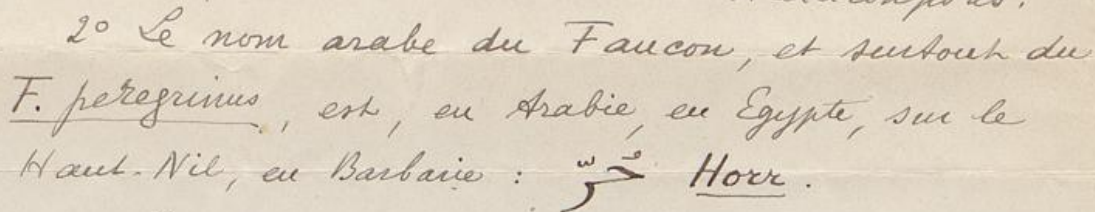 2° Le nom arabe du Faucon, et surtout du
F. peregrinus, est, en Arabie, en Egypte, sur le
Haut-Nil, en Barbarie : حُرّ Horr.